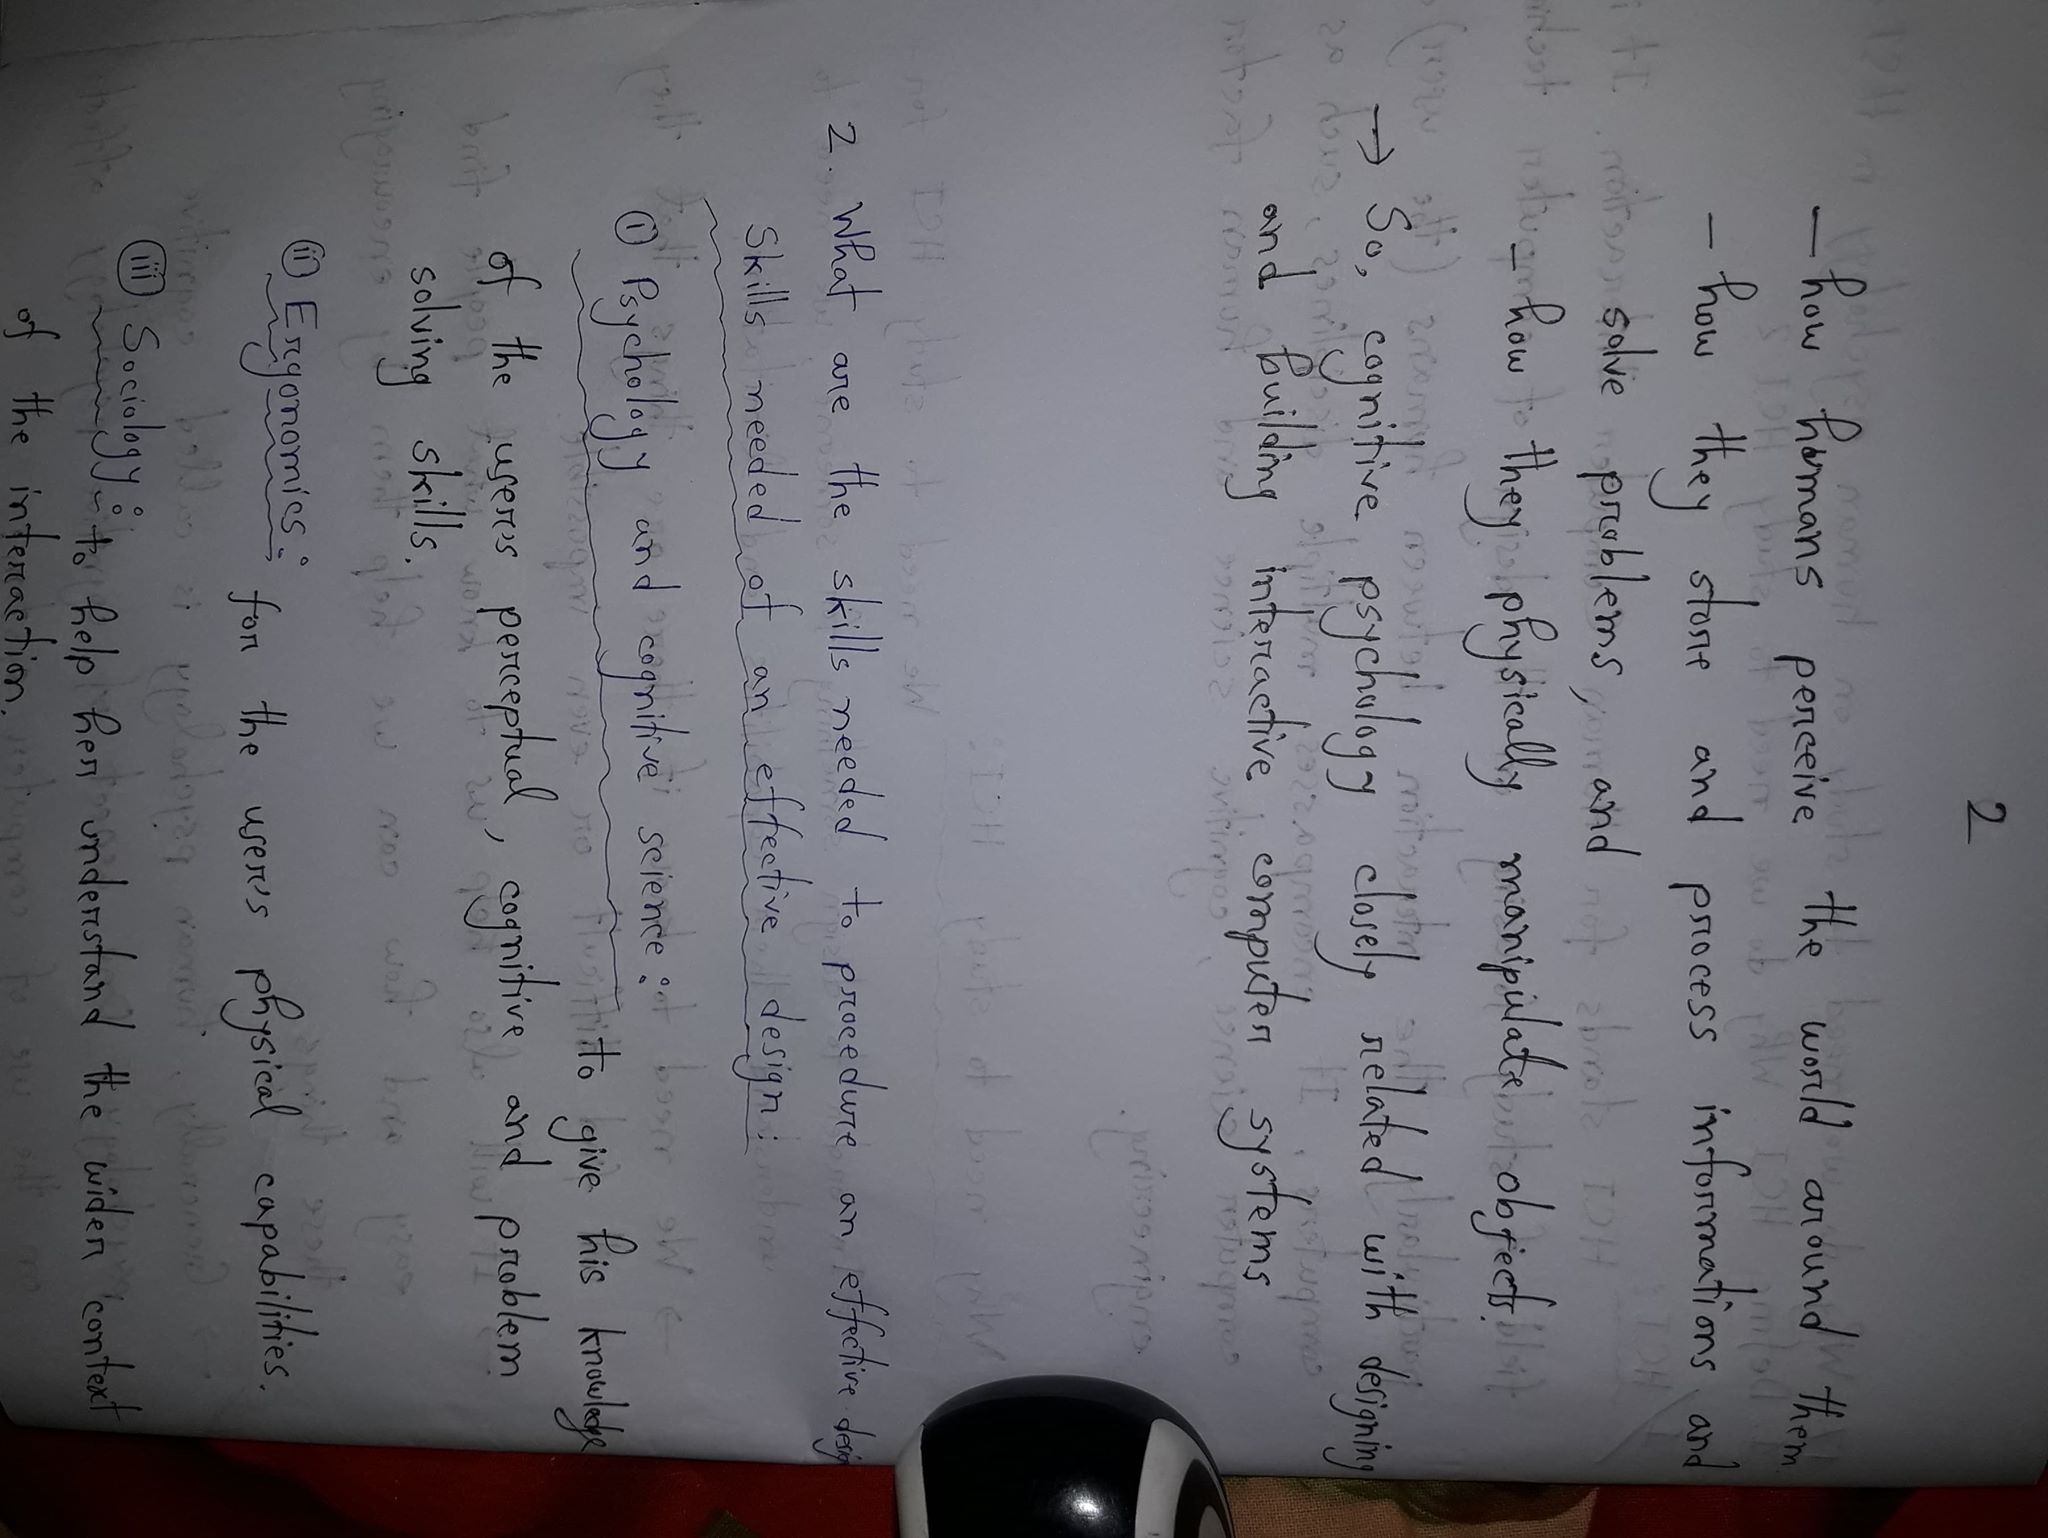 2
— how humans perceive the world around them
— how they store and process informations and
solve problems, and
— how they physically manipulate objects.
→ So, cognitive psychology closely related with designing
and building interactive computer systems
2. What are the skills needed to proceedure an effective design
Skills needed of an effective design:
(i) Psychology and cognitive science: to give his knowledge
of the users perceptual, cognitive and problem
solving skills.
(ii) Ergonomics: for the user's physical capabilities.
(iii) Sociology: to help her understand the wider context
of the interaction.